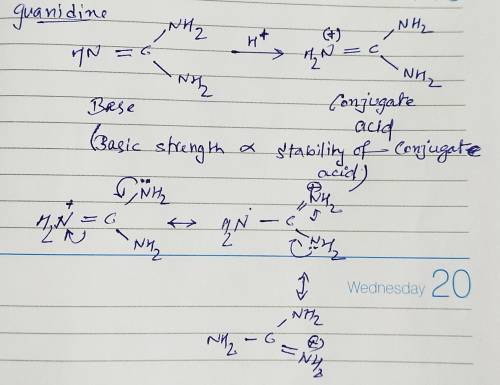 guanidine
HN = C NH2 NH2 H+ → H2N (+) = C NH2 NH2
Base Conjugate acid
(Basic strength ∝ stability of Conjugate acid)
H2N+ = C N̈H2 NH2 ↔ H2N - C = NH2 (+) N̈H2
↕
NH2 - C NH2 = NH2 (+)
Wednesday 20